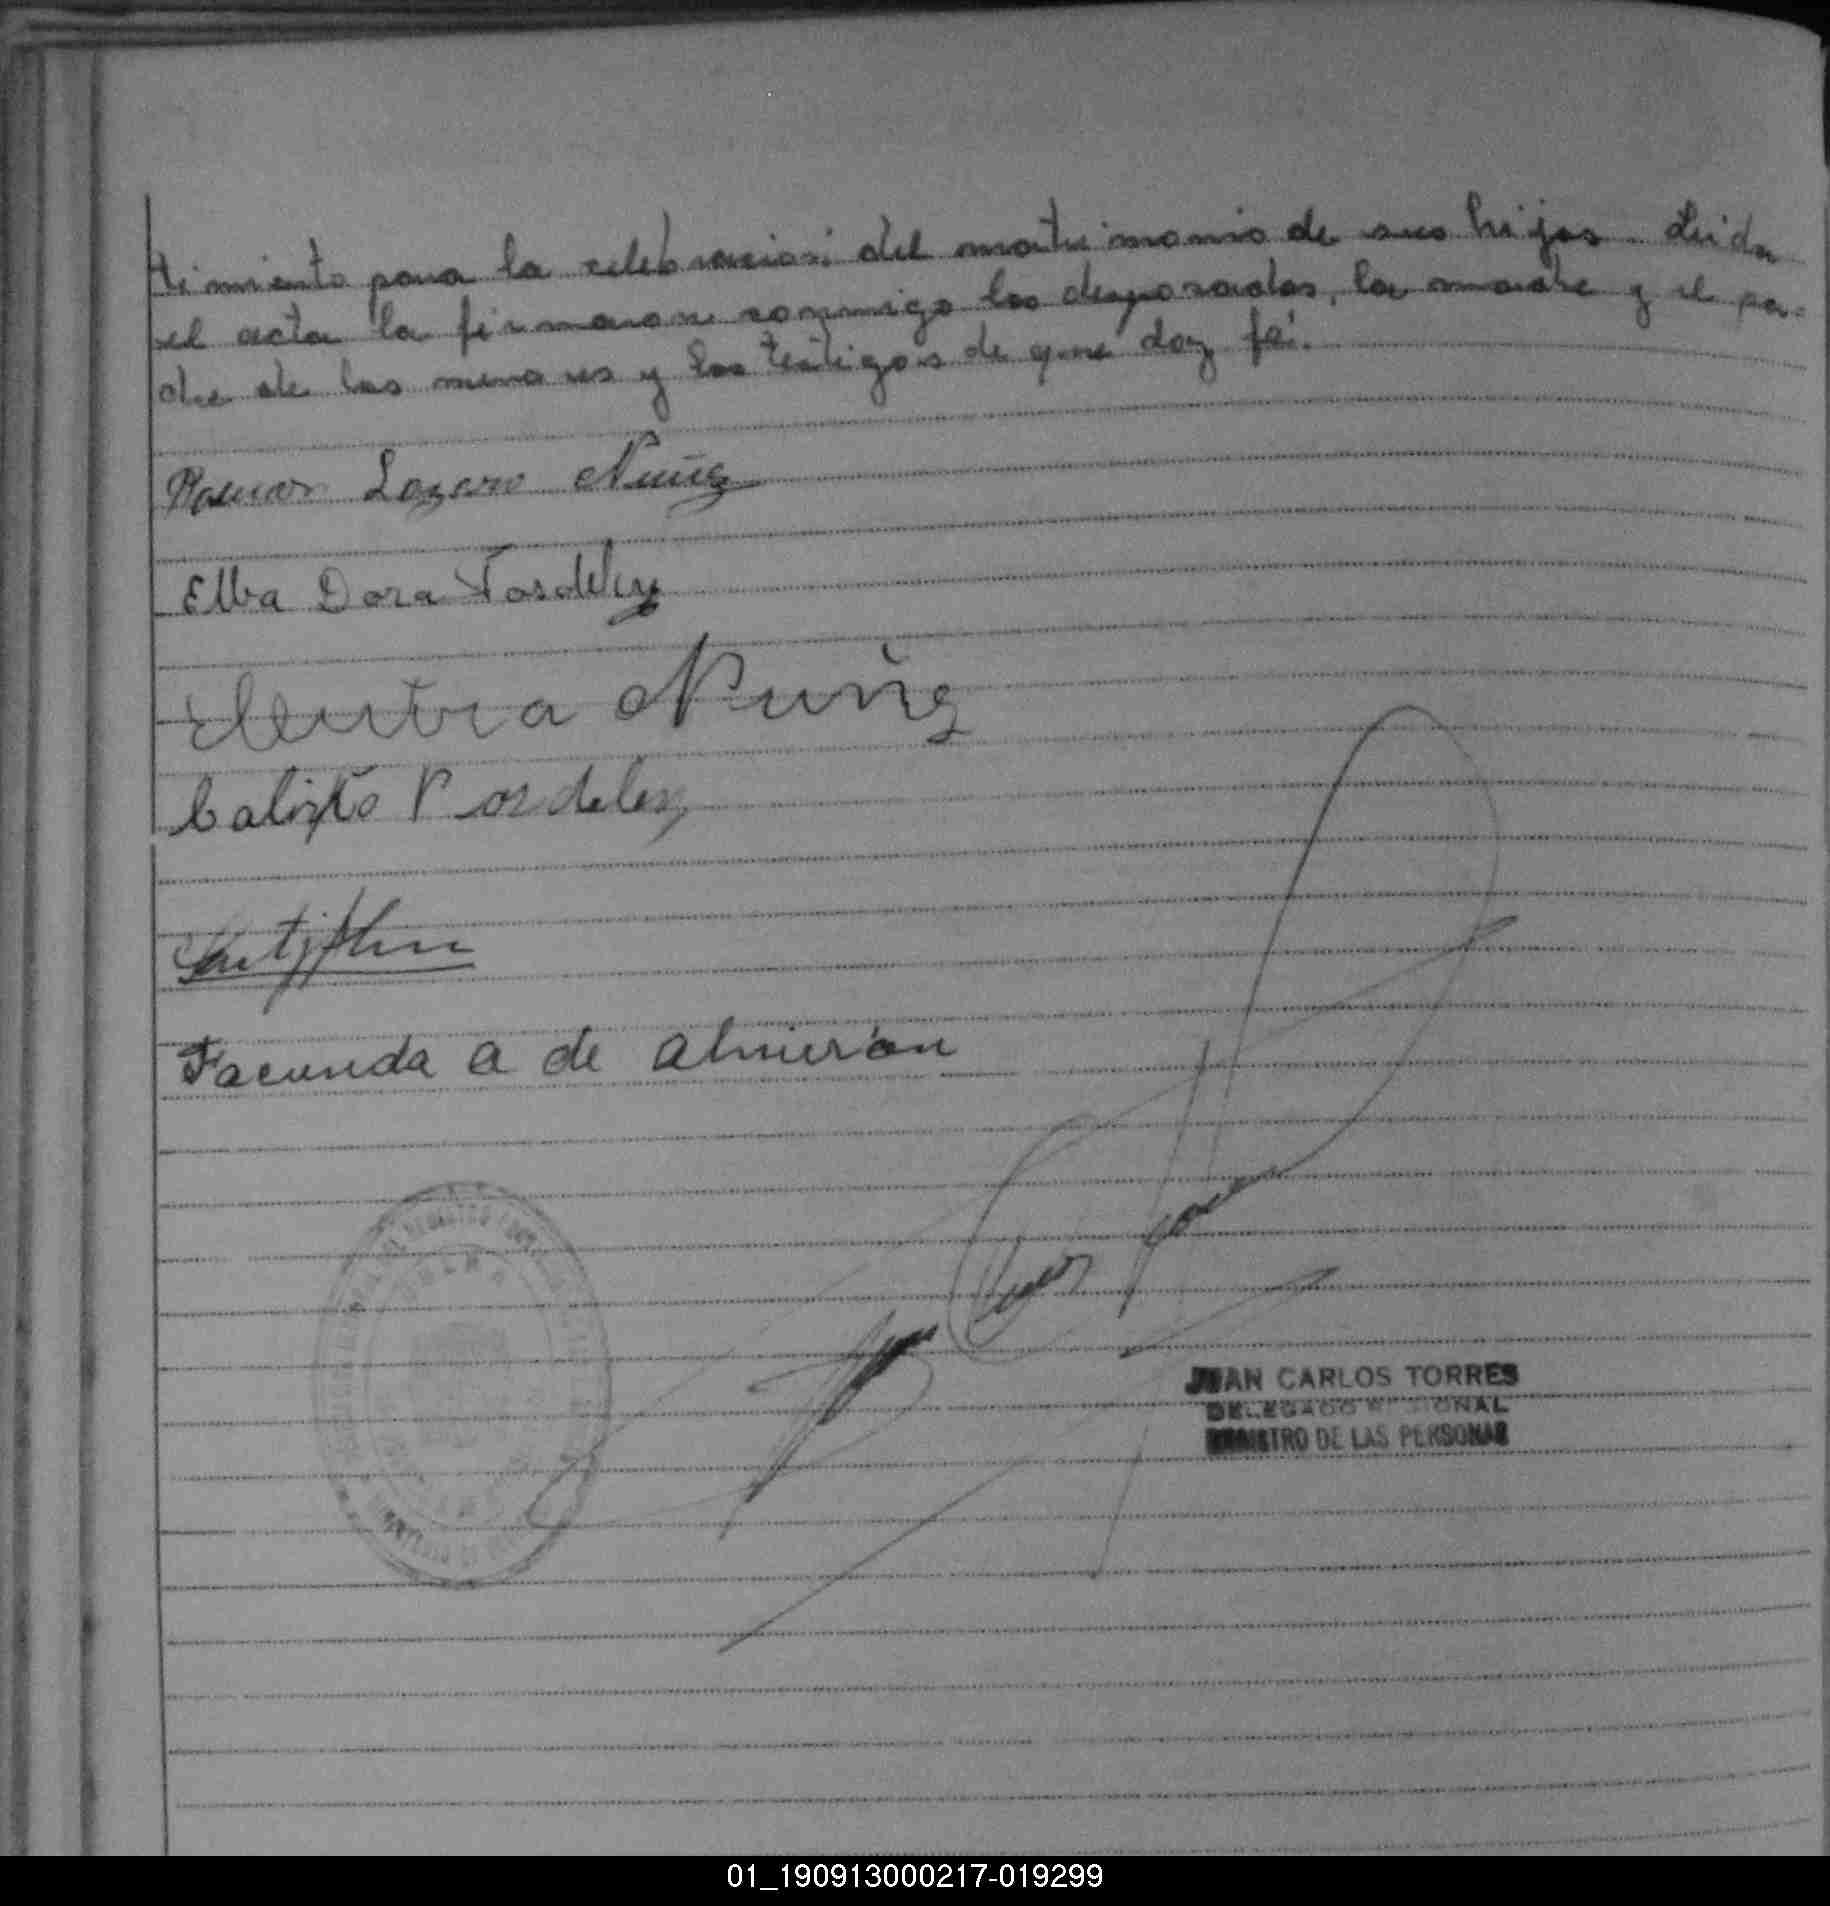 timiento para la celebración del matrimonio de sus hijos. Leida
el acta la firmaron conmigo los desposados, la madre y el pa-
dre de los menores y los testigos de que doy fé.
Ramon Lazaro Nuñez
Elba Dora
Nuñez
Calixto
Facunda A de Almirón
JUAN CARLOS TORRES
DELEGADO REGIONAL
REGISTRO DE LAS PERSONAS
01_190913000217-019299